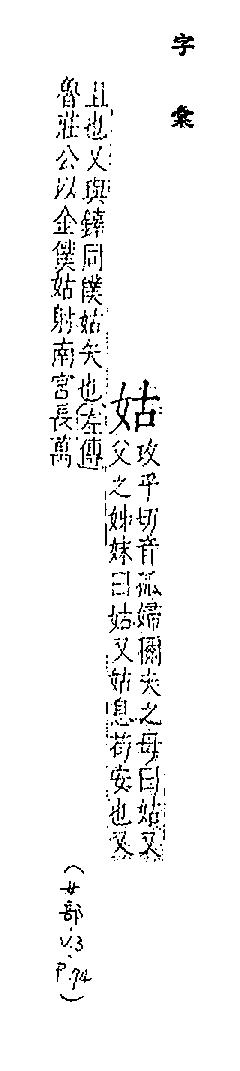 字彙
姑
攻乎切音孤婦稱夫之母曰姑又
父之姊妹曰姑又姑息苟安也又
且也又與鏃同僕姑矢也左傳
魯莊公以金僕姑射南宮長萬
(女部、V.3、P.74)